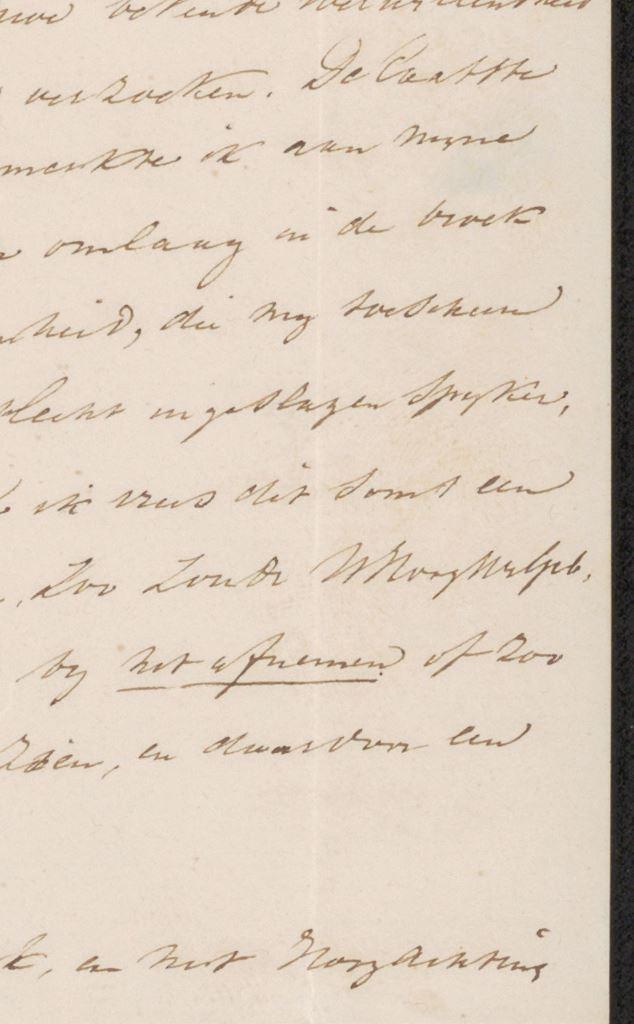 uwe bekende welwillendheid
verzoeken. De laatste
merkte ik aan myne
omlaag in de broek
heid, die my toescheen
slecht ingeslagen spyker,
ik vrees dit soms een
, Zoo Zoude WHoogWelgeb.
by het afnemen of zoo
Zien, en daarvoor een
k, en met Hoogachting